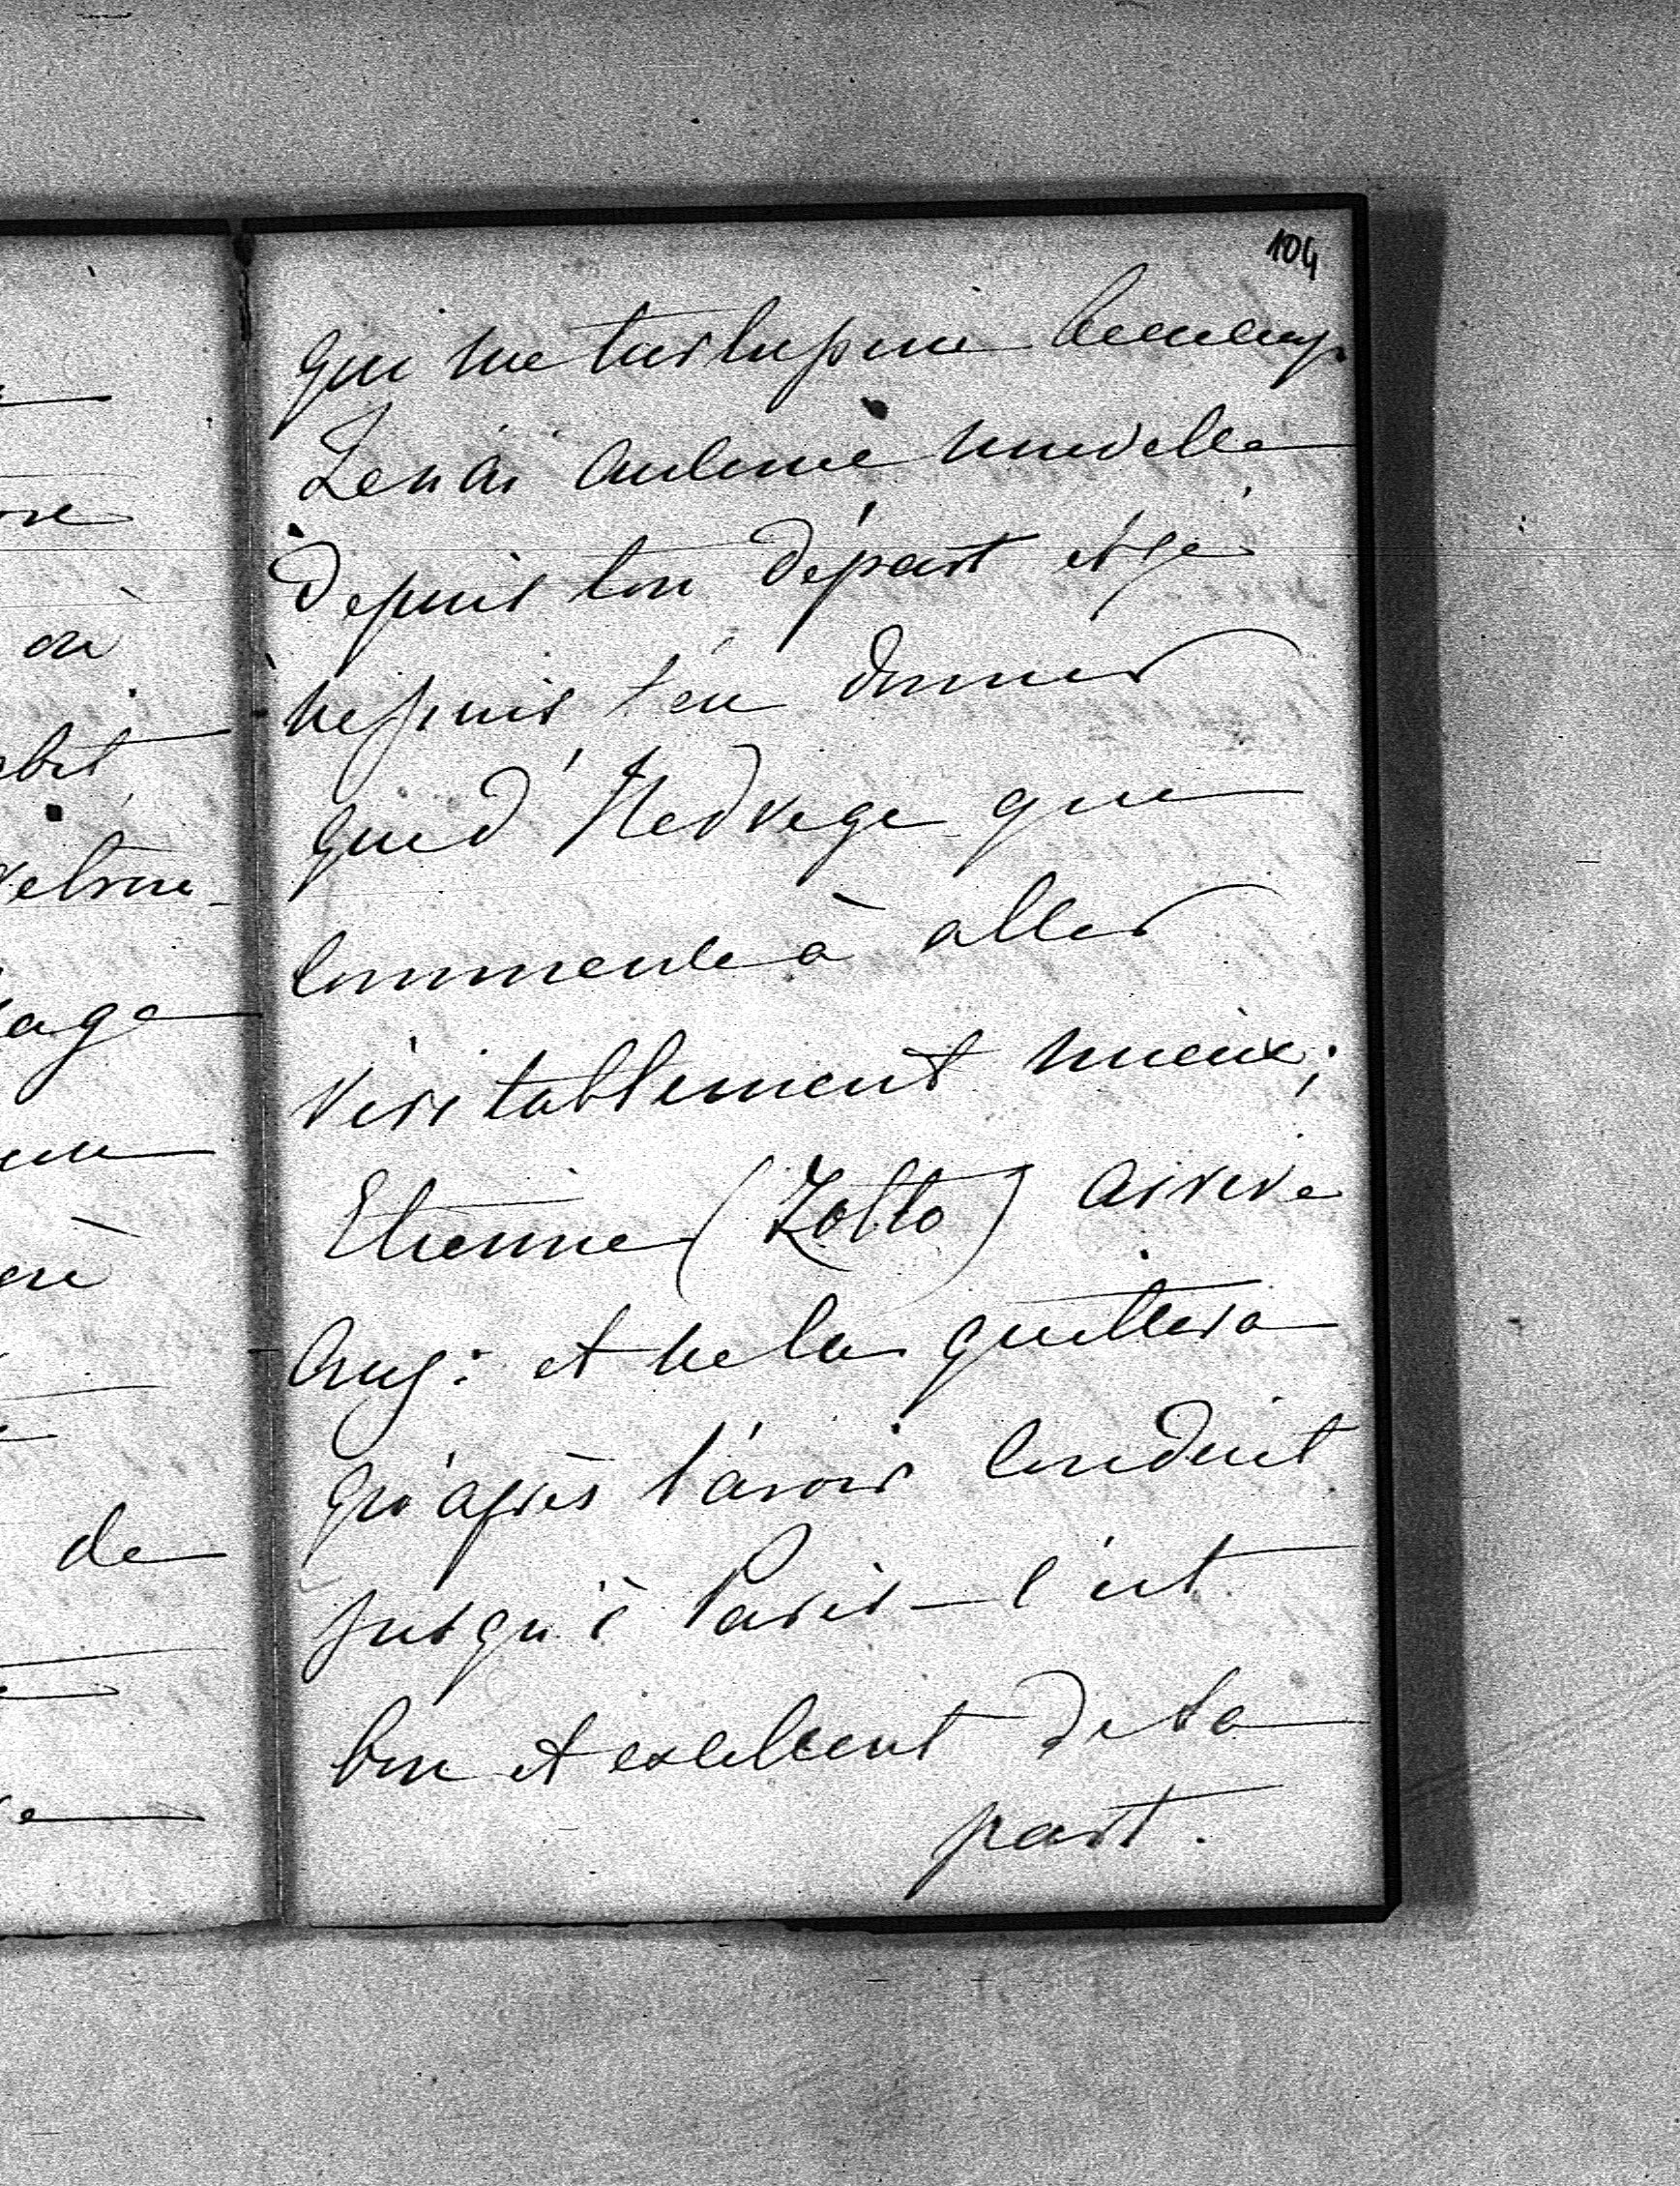 104
qui me turlupine beaucoup.
Je n'ai aucune nouvelle
depuis ton départ et je
ne puis t'en donner
que d'Hedvige que
commence à aller
véritablement mieux;
Etienne (Zolto) arrive
et ne la quittera
qu'après l'avoir conduit
jusqu'à Paris – c'est
bon et excellent de sa
part.
de